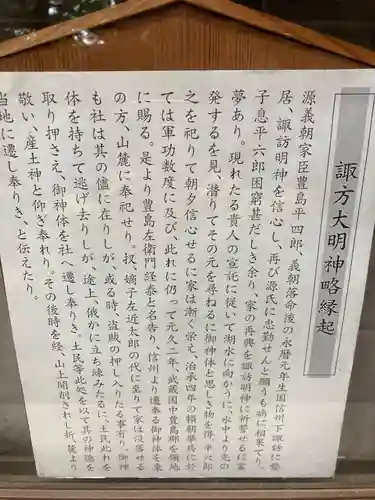 諏方大明神略縁起
源義朝家臣豊島平四郎、義朝落命後の永暦元年生国信州下諏訪に蟄
居、諏訪明神を信心し、再び源氏に忠勤せんと願うも病に相果てり、
子息平六郎困窮甚だしき余り、家の再興を諏訪明神に祈誓せるに霊
夢あり。現れたる貴人の宣託に従いて湖水に向かうに、水中より光の
発するを見、潜りてその元を尋ねるに御神体と思しき物を得、平六郎
之を祀りて朝夕信心せるに家は漸く栄え、治承四年の頼朝挙兵に於
ては軍功数度に及び、此れに仍って元久二年、武蔵国中豊島郡を領地
に賜る。是より豊島左衛門経泰と名告り、信州より遷奉る御神体を東
の方、山麓に奉祀せり。扨、嫡子左近太郎の代に至りて家は没落せる
も社は其の儘に在りしが、或る時、盗賊の押し入りたる事有り。御神
体を持ちて逃げ去りしが、途上、俄かに立ち竦みたるに、土民此れを
取り押さえ、御神体を社へ遷し奉りき。土民等此処を以て其の神徳を
敬い、産土神と仰ぎ奉れり。その後時を経、山上開削されし折、麓より
当地に遷し奉りき、と伝えたり。